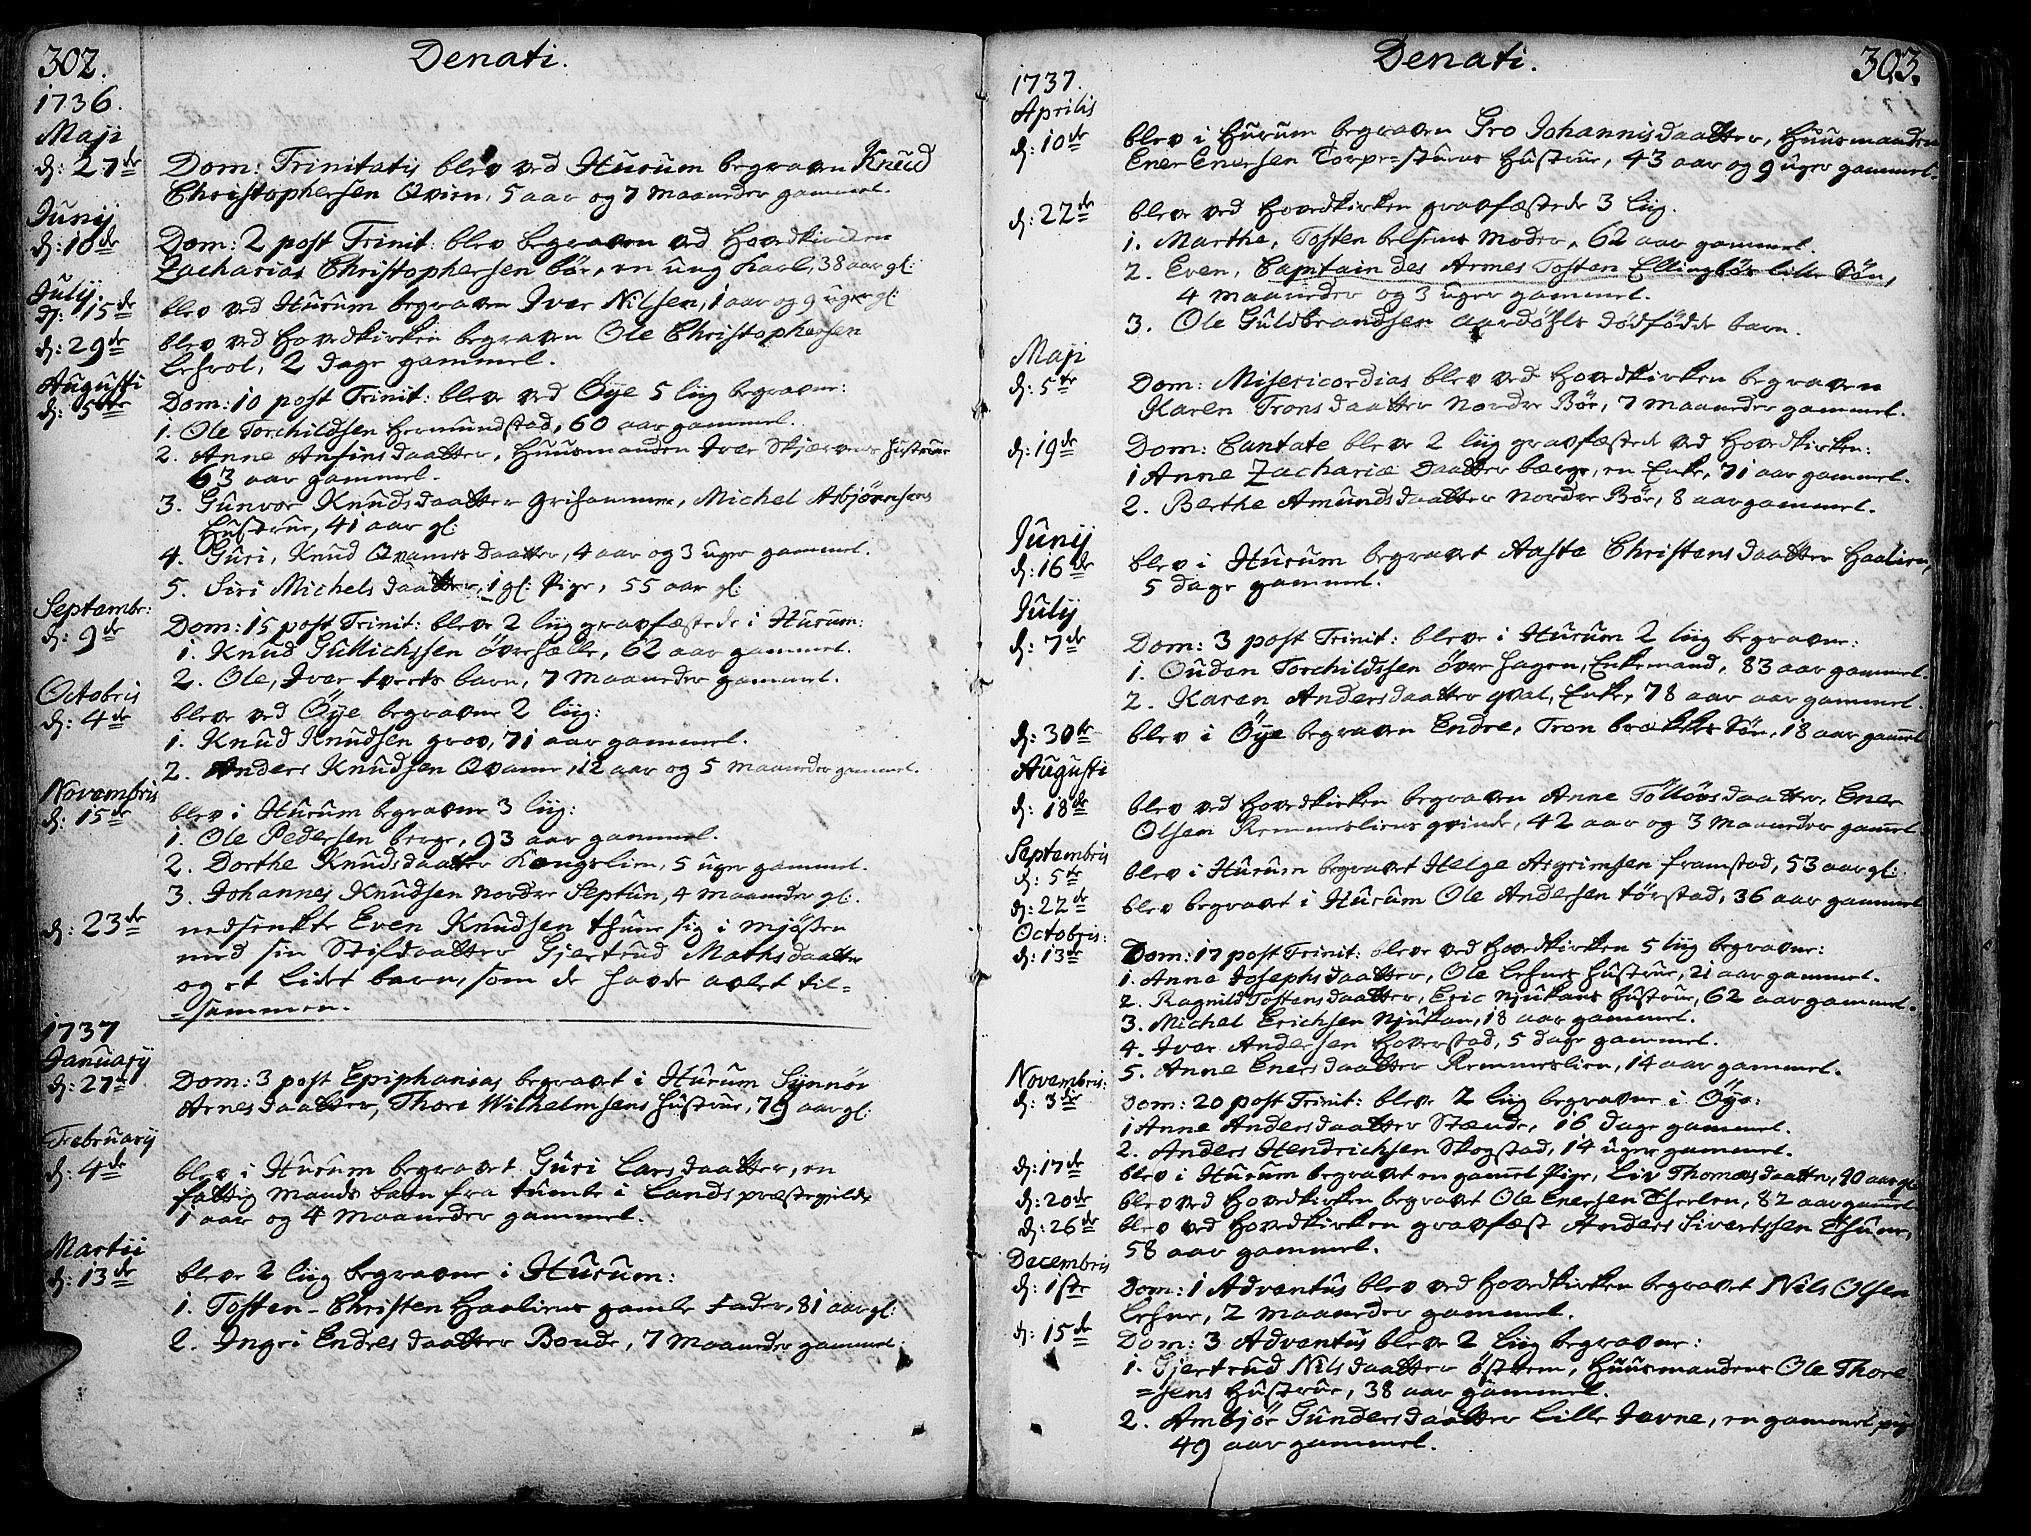 302. Denati.
1736.
Maji
d: 27de Dom: Trinitatis blev ved Hurum begraven Knud
Christophersen Qvien, 5 aar og 7 Maaneder gammel.
Junij
d: 10de Dom: 2 post Trinit: blev begraven ved Hovedkirken
Zacharias Christophersen bör, en ung Karl, 38 aar gl:
Julij
d: 15de blev ved Hurum begraven Iver Nilsen, 1 aar og 9 uger gl:
d: 29de blev ved Hovedkirken begraven Ole Christophersen
2 dage gammel.
Augusti
d: 5te Dom: 10 post Trinit: bleve ved Öye 5 liig begravne:
1. Ole Torchildsen Hermundstad, 60 aar gammel.
2. Anne Anfinsdaatter, Huusmanden Iver Skjærvens Hustrue
63 aar gammel.
3. Gunvor Knudsdaatter Grihamme, Michel Asbjörnsens
Hustrue, 41 aar gl:
4. Guri, Knud Qvames Daatter, 4 aar og 3 uger gammel.
5. Siri Michelsdaatter, 1 gl: Pige, 55 aar gl:
Septembr:
d: 9de Dom: 15 post Trinit: bleve 2 liig gravfæstede i Hurum:
1. Knud Gullichssen övre 62 aar gammel.
2. Ole, Iver tverts barn, 7 Maaneder gammel.
Octobris
d: 4de bleve ved Öye begravne 2 liig:
1. Knud Knudsen grov, 71 aar gammel.
2. Anders Knudsen Qvame, 12 aar og 5 Maaneder gammel.
Novembris
d: 15de blev i Hurum begravne 3 liig:
1. Ole Pedersen berge, 93 aar gammel.
2. Dorthe Knudsdaatter Kongslien, 5 uger gammel.
3. Johannes Knudsen Nordre Septun, 4 Maaneder gl:
d: 23de nedsenkte Even Knudsen thune sig i Mjösen
med sin Stifdaatter Gjertrud Mathsdaatter
og et Lidet barn, som de havde avlet til=
=sammen.
1737
January
d: 27de Dom: 3 post Epiphanias begravet i Hurum Synnör
Arnesdaatter, Thore Wilhelmsens Hustrue, 79 aar gl:
February
d: 4de blev i Hurum begravet Guri Larsdaatter, en
fattig Mands barn fra tumle i Lands præstegield
1 aar og 4 Maaneder gammel.
Martii
d: 13de bleve 2 liig begravne i Hurum:
1. Tosten Christen Haaliens gamle Fader, 81 aar gl:
2. Ingri Endresdaatter Bonde, 7 Maaneder gammel.
Denati. 303.
1737.
Aprilis
d: 10de blev i Hurum begraven Gro Johannisdaatter, Huusmanden
Ener Enersen Torpe-sturens Hustrue, 43 aar og 9 uger gammel.
d: 22de bleve ved Hovedkirken gravfæstede 3 liig.
1. Marthe, Tosten belsens Moder, 62 aar gammel.
2. Even, Capitain des Armes Tosten Ellingböes lille Sön,
4 Maaneder og 3 uger gammel.
3. Ole Guldbrandsen dödfödde barn.
Maji
d: 5te Dom: Misericordias blev ved Hovedkirken begraven
Karen Tronsdaatter Nordre Bör, 7 Maaneder gammel.
d: 19de Dom: Cantate bleve 2 liig gravfæstede ved Hovedkirken:
1 Anne Zachariædaatter berge, en Enke, 71 aar gammel.
2. Berthe Amundsdaatter Nordre Bör, 8 aar gammel.
Junij
d: 16de blev i Hurum begravet Aaste Christensdaatter Haalien,
5 dage gammel.
July
d: 7de Dom: 3 post Trinit: bleve i Hurum 2 liig begravne:
1. Ouden Torchildssen över Hagen, Enkemand, 83 aar gammel.
2. Karen Andersdaatter qval, Enke, 78 aar aar gammel.
d: 30te blev i Öye begraven Endre, Tron brækkes Sön, 18 aar gammel
Augusti
d: 18de blev ved Hovedkirken begraven Anne Töllövsdaatter, Ener
Olsen Remmesliens qvinde, 42 aar og 3 Maaneder gammel.
Septembris
d: 5te blev i Hurum begravet Helge Asgrimsen framstad, 53 aar gl:
d: 22de blev begravet i Hurum Ole Andersen törstad, 36 aar gammel
Octobris:
d: 13de Dom: 17 post Trinit: bleve ved Hovedkirken 5 liig begravne:
1. Anne Josephsdaatter, Ole Hustrue, 21 aar gammel.
2. Ragnild Tostensdaatter, Eric Njukans Hustrue, 62 aar gammel.
3. Michel Erichsen Njukan, 18 aar gammel.
4. Iver Andersen Hoverstad, 5 dage gammel.
5. Anne Enersdaatter Remmeslien, 14 aar gammel.
Novembris:
d: 3die Dom: 20 post Trinit: bleve 2 liig begravne i Öye:
1 Anne Andersdaatter Stænde, 16 dage gammel.
2. Anders Hendrichsen Skogstad, 14 uger gammel.
d: 17de blev i Hurum begravet en gammel Pige, Liv Thomasdaatter, 90 aar gl
d: 20de blev ved Hovedkirken begravet Ole Enersen 82 aar gammel
d: 26de blev ved Hovedkirken gravfæst Anders Sivertssen Thune,
58 aar gammel.
Decembris
d: 1ste Dom: 1 Adventus blev ved Hovedkirken begravet Nils Olsen
2 Maaneder gammel.
d: 15de Dom: 3 Adventus bleve 2 liig begravne:
1. Gjertrud Nilsdaatter östrem, Huusmandens Ole Thore
=sens Hustrue, 38 aar gammel.
2. Ambjör Gundersdaatter Lille Javne, en gammel pige
49 aar gammel.